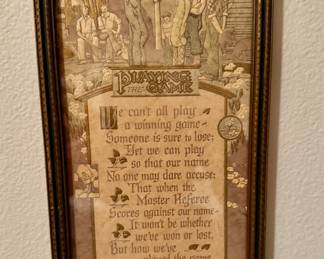 PLAYING
THE GAME
We can't all play
a winning game—
Someone is sure to lose;
Yet we can play
so that our name
No one may dare accuse:
That when the
Master Referee
Scores against our name—
It won't be whether
we've won or lost,
But how we've
played the game